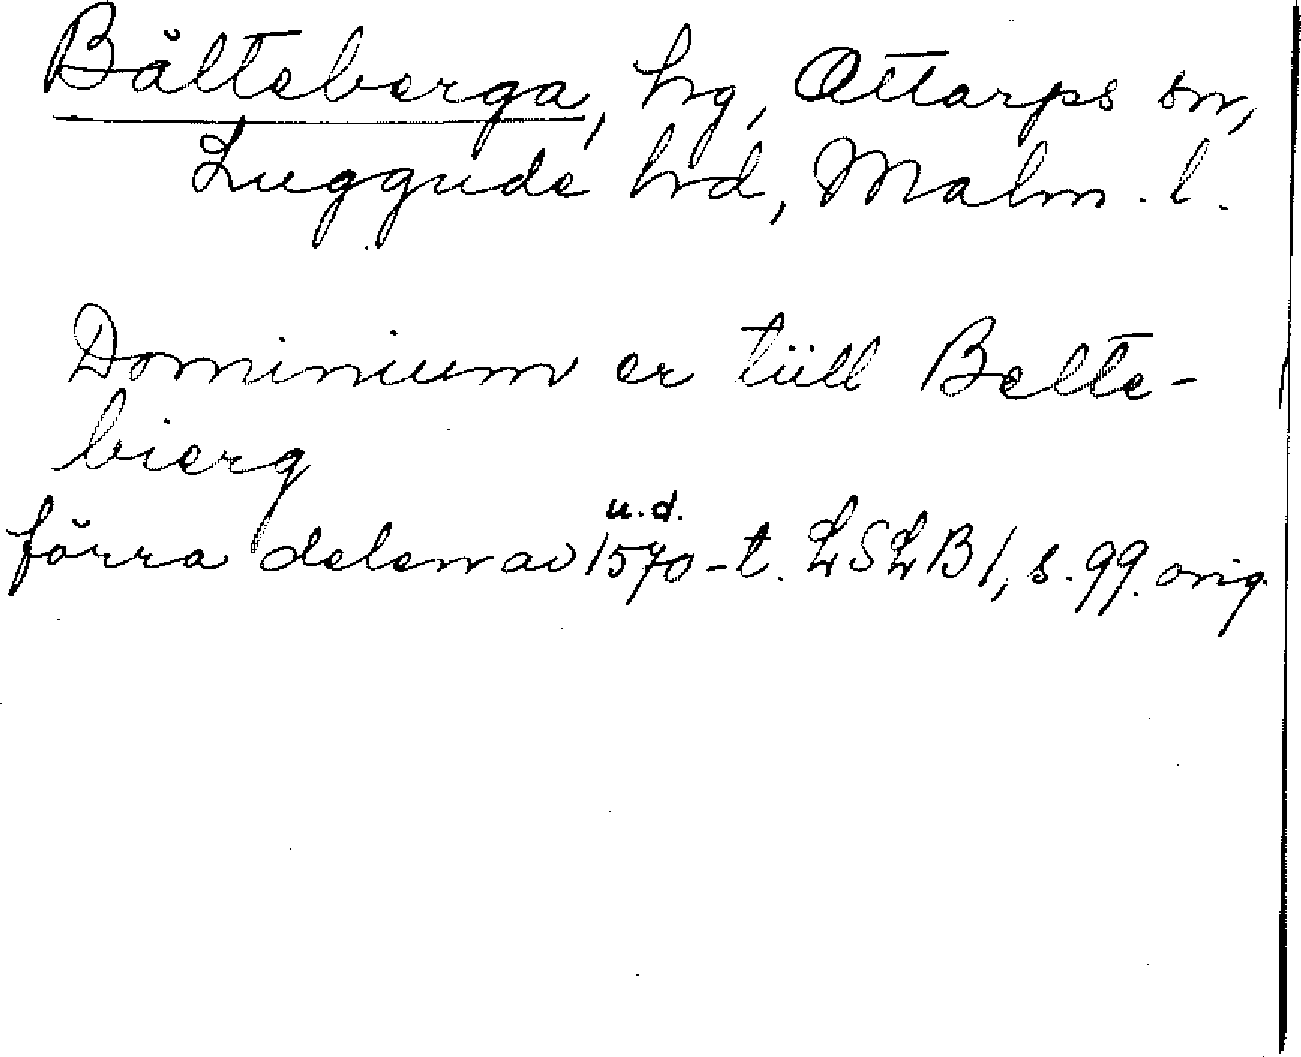 Bälteberga, hg, Ottarps sn,
Luggude hrd, Malm. l.
Dominium er tiill Belte-
bierg
u.d.
förra delen av 1570-t. LSLB 1, s. 99. orig.